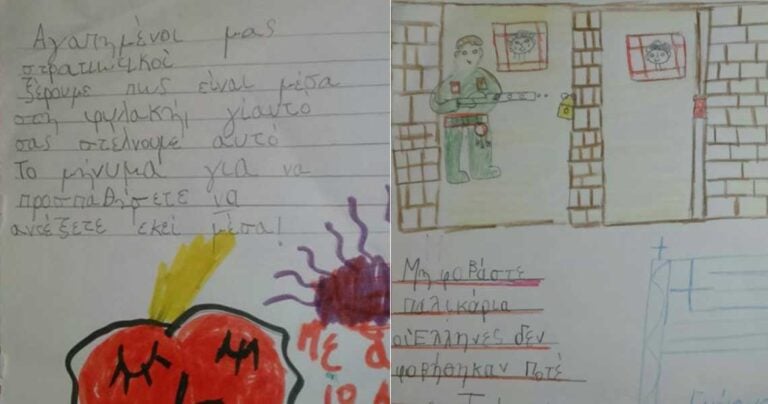 Αγαπημένοι μας
στρατιωτικοί
Ξέρουμε πως είναι μέσα
στη φυλακή, γίαυτο
σας στέλνουμε αυτό
Το μήνυμα για να
προσπαθήσετε να
αντέξετε εκεί μέσα!
Με
Μη φοβάστε
παλικάρια
οι Έλληνες δεν
φοβήθηκαν Ποτέ